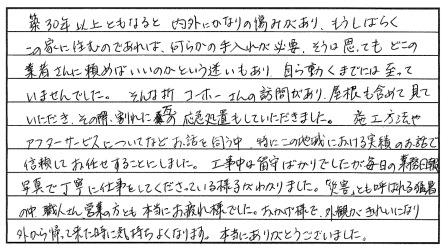 築30年以上ともなると 内外にかなりの傷みがあり、もうしばらく
この家に住むのであれば、何らかの手入れが必要、そうは思っても どこの
業者さんに頼めばいいのかという迷いもあり 自ら動くまでには至って
いませんでした。 そんな折 コーホーさんの訪問があり、屋根も含めて見て
いただき、その際、割れた瓦の応急処置もしていただきました。 施工方法や
アフターサービスについてなどお話を伺う中、特にこの地域における実績のお話で
信頼して お任せすることにしました。 工事中は留守ばかりでしたが毎日の業務日報
写真で丁寧に仕事をしてくださっている様子がわかりました。「災害」とも呼ばれる猛暑
の中 職人さん 営業の方も 本当にお疲れ様でした。おかげ様で、外観がきれいになり
外から帰って来た時に気持ちよくなります。本当にありがとうございました。